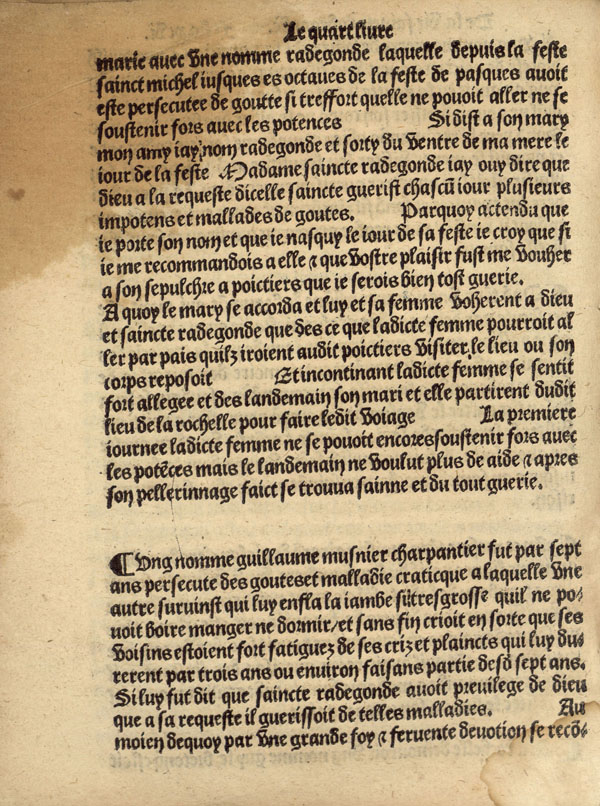 Le quart liure
marie auec vne nomme radegonde laquelle depuis la feste
sainct michel iusques es octaues de la feste de pasques auoit
este persecutee de goutte si treffort quelle ne pouoit aller ne se
soustenir fors auec les potences Si dist a son mary
mon amy iay nom radegonde et sorty du ventre de ma mere le
iour de la feste Madame saincte radegonde iay ouy dire que
dieu a la requeste dicelle saincte guerist chascũ iour plusieurs
impotens et mallades de goutes. Parquoy actendu que
ie porte son nom et que ie nasquy le iour de sa feste ie croy que si
ie me recommandois a elle ⁊ que vostre plaisir fust me vouher
a son sepulchre a poictiers que ie serois bien tost guerie.
A quoy le mary se accorda et luy et sa femme voherent a dieu
et saincte radegonde que des ce que ladicte femme pourroit al
ler par pais quilz iroient audit poictiers visiter le lieu ou son
corps reposoit Et incontinant ladicte femme se sentit
fort allegee et des landemain son mari et elle partirent dudit
lieu de la rochelle pour faire ledit voiage La premiere
iournee ladicte femme ne se pouoit encores soustenir fors auec
les potẽces mais le landemain ne voulut plus de aide ⁊ apres
son pellerinnage faict se trouua sainne et du tout guerie.
¶ Vng nomme guillaume musnier charpantier fut par sept
ans persecute des gouteset malladie craticque a laquelle vne
autre suruinst qui luy enfla la iambe si tresgrosse quil ne po/
uoit boire manger ne dormir/et sans fin crioit en sorte que ses
voisins estoient fort fatiguez de ses criz et plaincts qui luy du/
rerent par trois ans ou enuiron faisans partie desd sept ans.
Si luy fut dit que saincte radegonde auoit preuilege de dieu
que a sa requeste il guerissoit de telles malladies. Au
moien dequoy par vne grande foy ⁊ feruente deuotion se recõ/